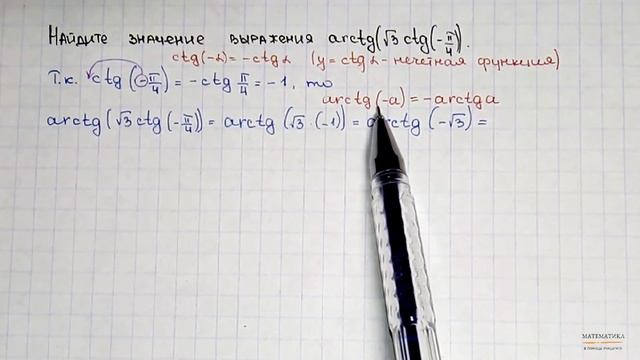 Найдите значение выражения arctg(√3 ctg(-π/4)).
ctg(-α) = -ctg α (y = ctg α - нечётная функция)
Т.к. ctg(-π/4) = -ctg π/4 = -1, то
arctg(-a) = -arctg a
arctg(√3 ctg(-π/4)) = arctg(√3·(-1)) = arctg(-√3) =
МАТЕМАТИКА
В ПОМОЩЬ УЧАЩИМСЯ